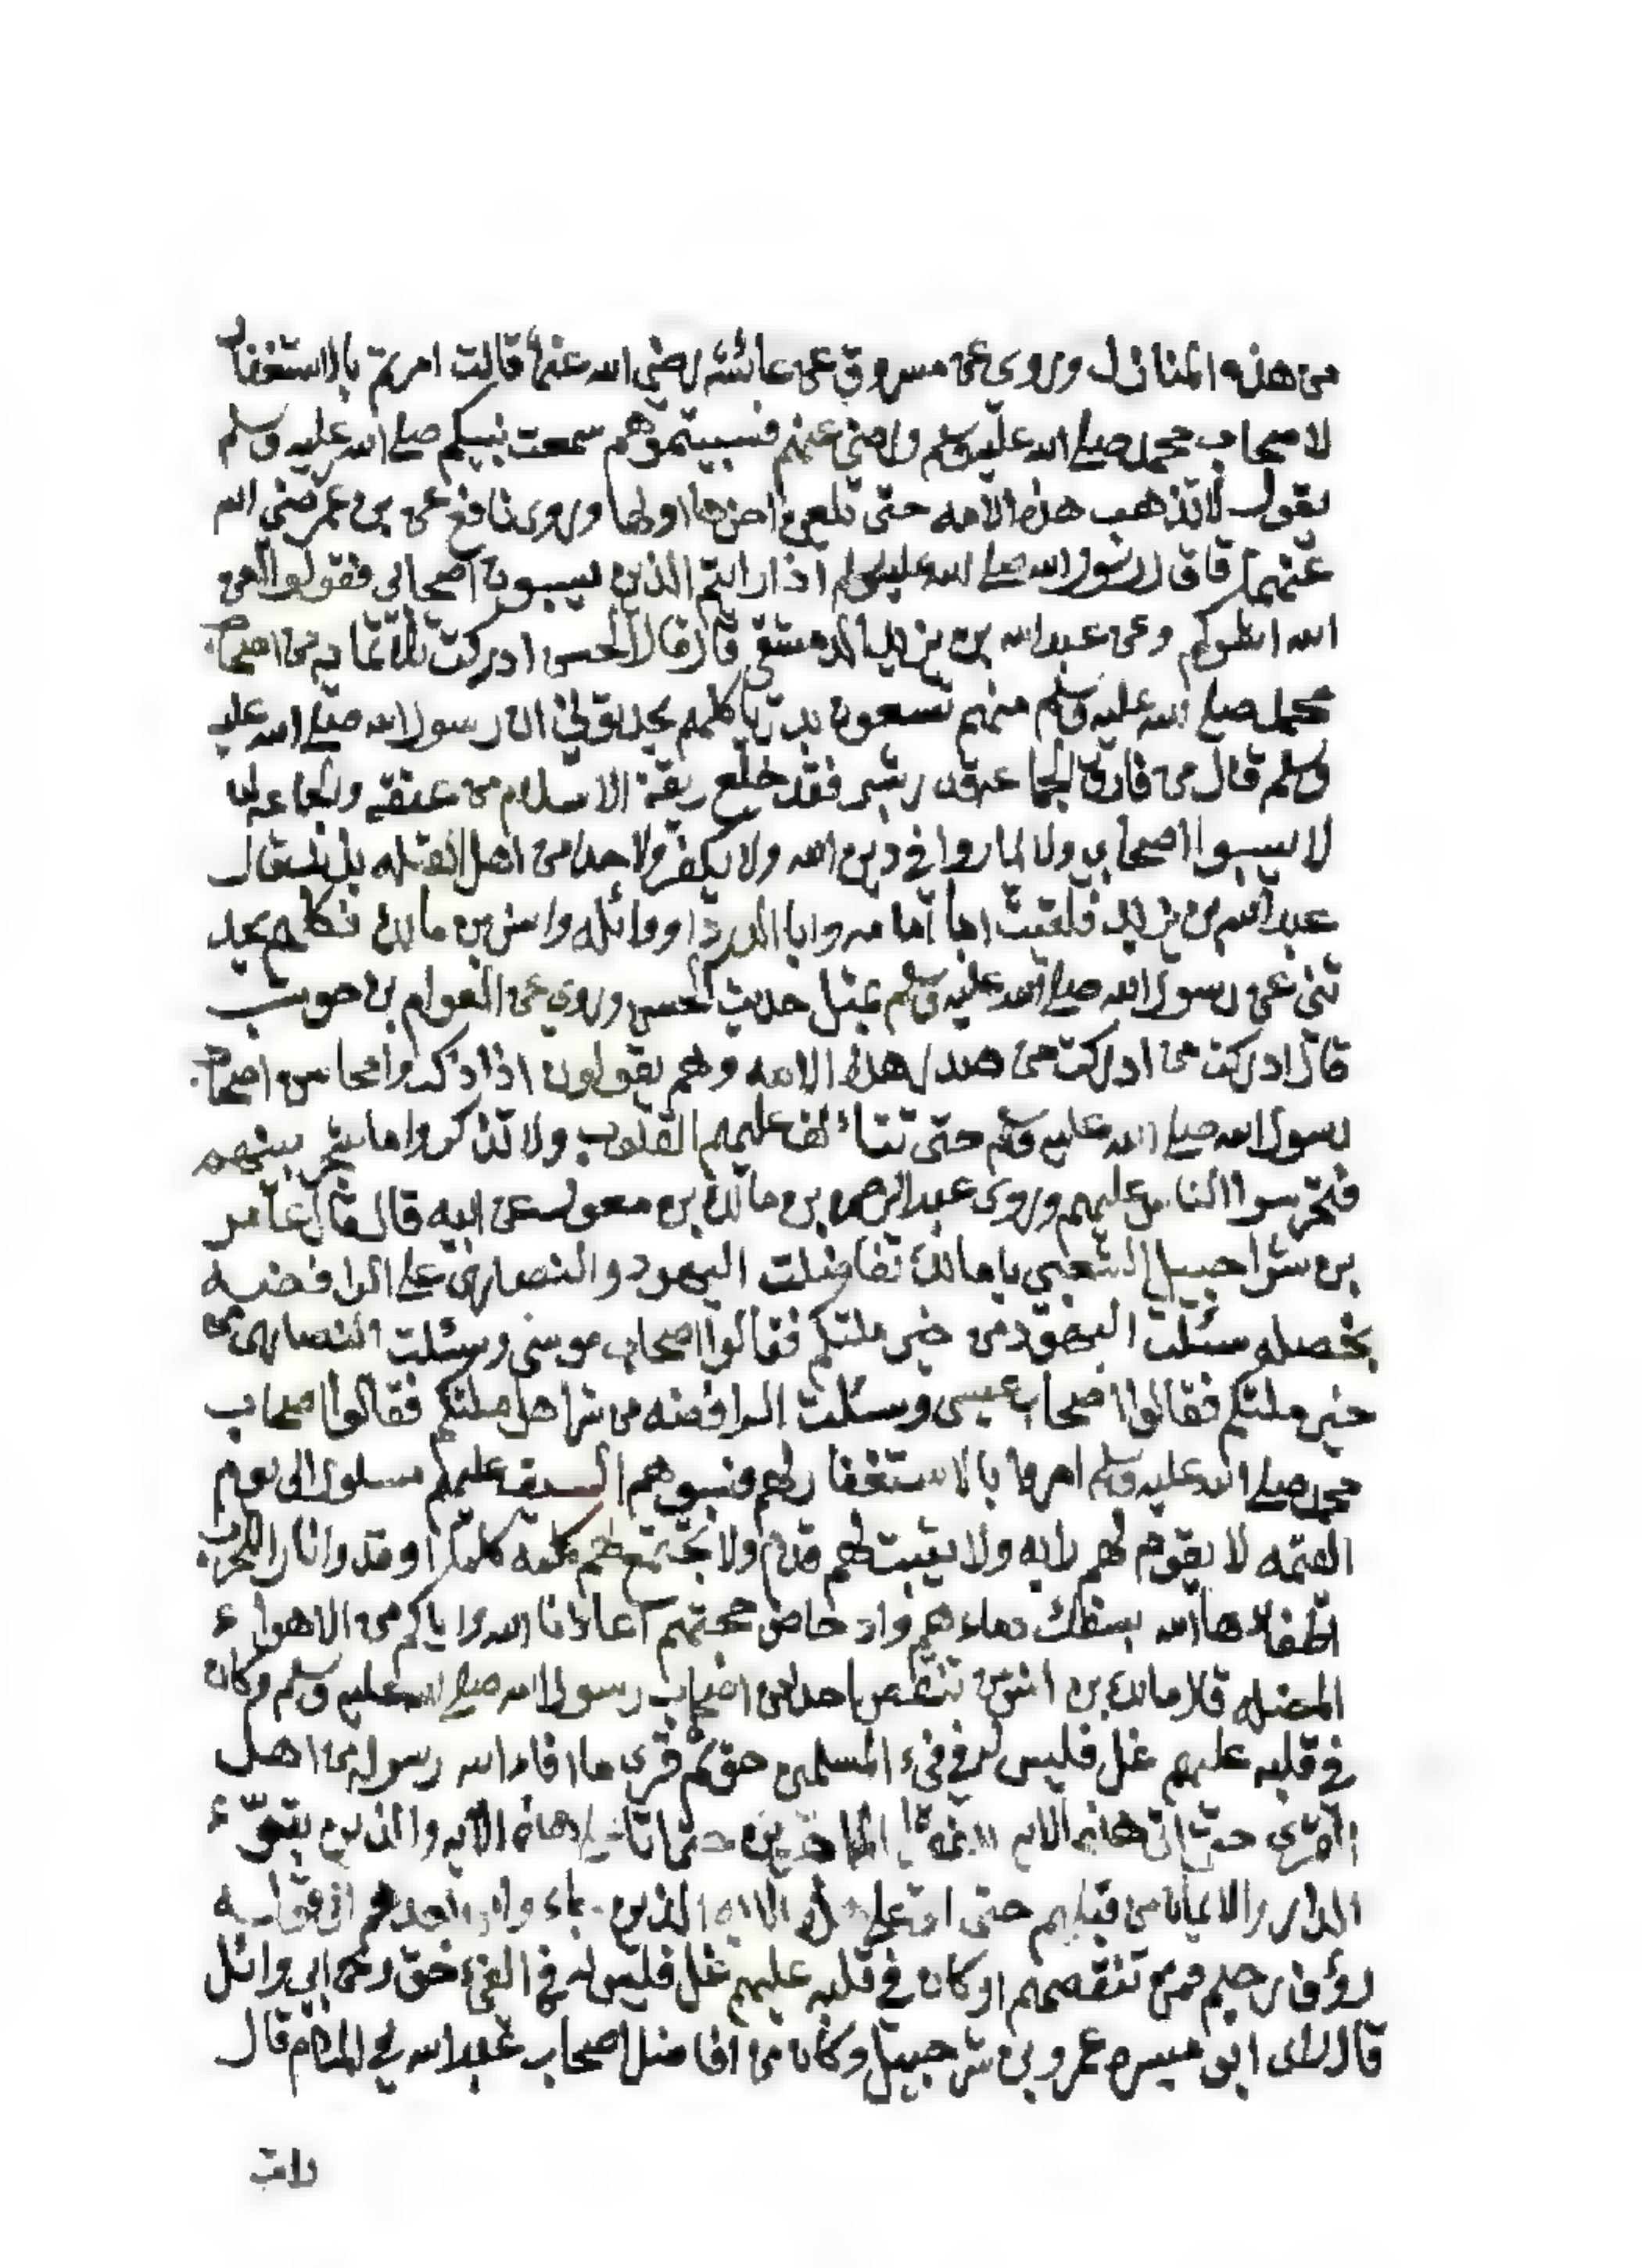 من هذه المنازل وروي عن مسروق عن عائشه رضي الله عنها قالت امرتم بالاستغفار
لاصحاب محمد صلي الله عليه وسلم ورضي عنهم فسببتموهم سمعت نبيكم صلي الله عليه وسلم
يقول لا تذهب هذه الامه حتى تلعن اخرها اولها وروى نافع عن بن عمر رضي الله
عنهما قال قال رسول الله صلي الله عليه وسلم اذا رايتم الذين يسبون اصحابي فقولوا لعن
الله اشركم وعن عبد الله بن يزيد الدمشقي قال قال الحسن ادركت ثلاثمايه من اصحاب
محمد صلي الله عليه وسلم منهم تسعون بدريا كلهم يحدثوني ان رسول الله صلي الله عليه
وسلم قال من فارق الجماعه قدر شبر فقد خلع ربقة الاسلام من عنقه والجماعه ان
لا تسبوا اصحابي ولا تماروا في دين الله ولا تكفروا احدا من اهل القبله بذنب قال
عبد الله بن يزيد فلقيت ابا امامه وابا الدرداء وواثله وانس بن مالك فكلهم يحد
ثني عن رسول الله صلي الله عليه وسلم بمثل حديث الحسن وروي عن العوام بن حوشب
قال ادركت من ادركت من صدر هذه الامه وهم يقولون اذا ذكروا محاسن اصحاب
رسول الله صلي الله عليه وسلم حتى تتاء لف عليهم القلوب ولا تذكروا ما شجر بينهم
فتحرشوا الناس عليهم وروى عبد الرحمن بن مالك بن مغول عن ابيه قال قال عامر
بن شراحبيل الشعبي يا مالك تفاضلت اليهود والنصارى على الرافضه
بخصله سئلت اليهود من خير ملتكم فقالوا اصحاب موسى وسئلت النصارى من
خير ملتكم فقالوا اصحاب عيسى وسئلت الرافضه من شر اهل ملتكم فقالوا اصحاب
محمد صلي الله عليه وسلم امروا بالاستغفار لهم فسبوهم السيف عليهم مسلول الى يوم
القيمه لا يقوم لهم رايه ولا يثبت لهم قدم ولا يجتمع لهم كلمه كلما اوقدوا نارا للحرب
اطفاها الله بسفك دماءهم وادحاض حجتهم اعاذنا الله واياكم من الاهواء
المضله قال مالك بن انس من تنقص احدا من اصحاب رسول الله صلي الله عليه وسلم وكان
في قلبه عليهم غل فليس له في فيء المسلمين حق ثم قرى ما افاء الله رسوله من اهل
القرى حتى اتى هذه الايه للفقراء المهاجرين حتى اتا على هذه الايه والذين تبوؤ
الدار والايمان من قبلهم حتى اتى على هذه الايه والذين جاءوا من بعدهم الى قوله
رؤف رحيم فمن تنقصهم او كان في قلبه عليهم غل فليس له في الفيء حق وعن ابي وائل
قال راى ابو ميسره عمرو بن شرحبيل وكان من افاضل اصحاب عبد الله في المنام قال
رايت